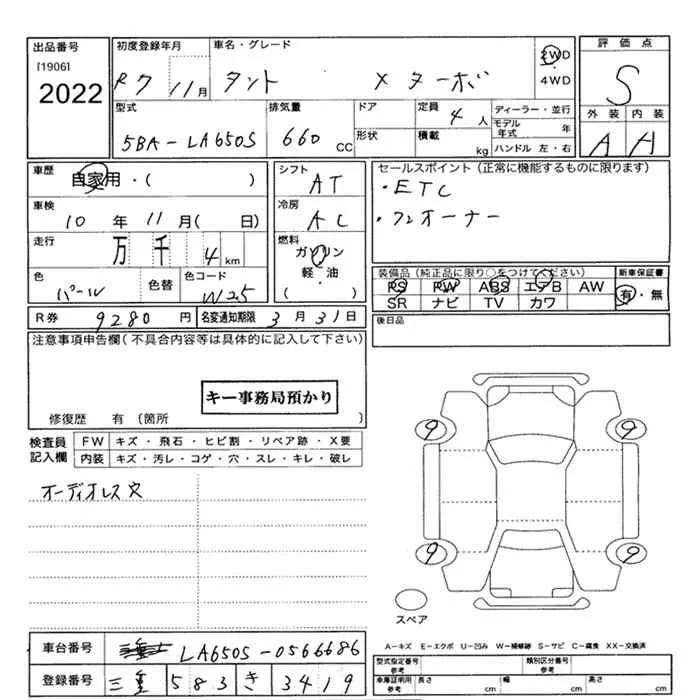 出品番号
[1906]
2022
初度登録年月 R7 11月
車名・グレード タント X ターボ
2WD
4WD
評価点
S
外装 内装
A A
型式 5BA-LA650S
排気量 660 CC
ドア
形状
定員 4人
積載 kg
ディーラー・並行
モデル年式 年
ハンドル 左・右
車歴 自家用・( )
車検 10年11月( 日)
走行 万千4km
色 パール 色替 色コード W25
シフト AT
冷房 AC
燃料 ガソリン
軽・油
( )
セールスポイント(正常に機能するものに限ります)
・ETC
・ワンオーナー
装備品(純正品に限り○をつけてください) 新車保証書
PS PW ABS エアB AW 有・無
SR ナビ TV カワ
後日品
R券 9280円 名変通知期限 3月31日
注意事項申告欄(不具合内容等は具体的に記入して下さい)
キー事務局預かり
修復歴 有(箇所 )
検査員記入欄
FW キズ・飛石・ヒビ割・リペア跡・X要
内装 キズ・汚レ・コゲ・穴・スレ・キレ・破レ
オーディオレス穴
9 9
9 9
スペア
車台番号 LA650S-0566686
登録番号 三重 583 き 3419
A-キズ E-エクボ U-凹み W-補修跡 S-サビ C-腐食 XX-交換済
型式指定番号 参考 類別区分番号 参考
車庫証明用 参考 長さ cm 幅 cm 高さ cm